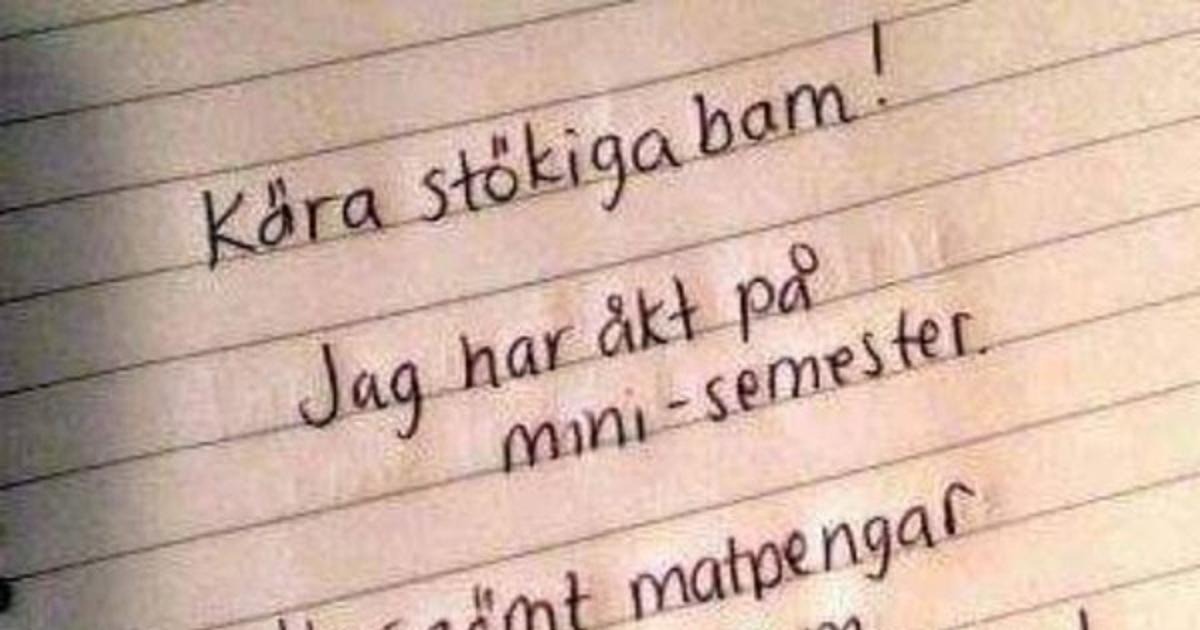 Kära stökiga barn!
Jag har åkt på
mini-semester.
matpengar